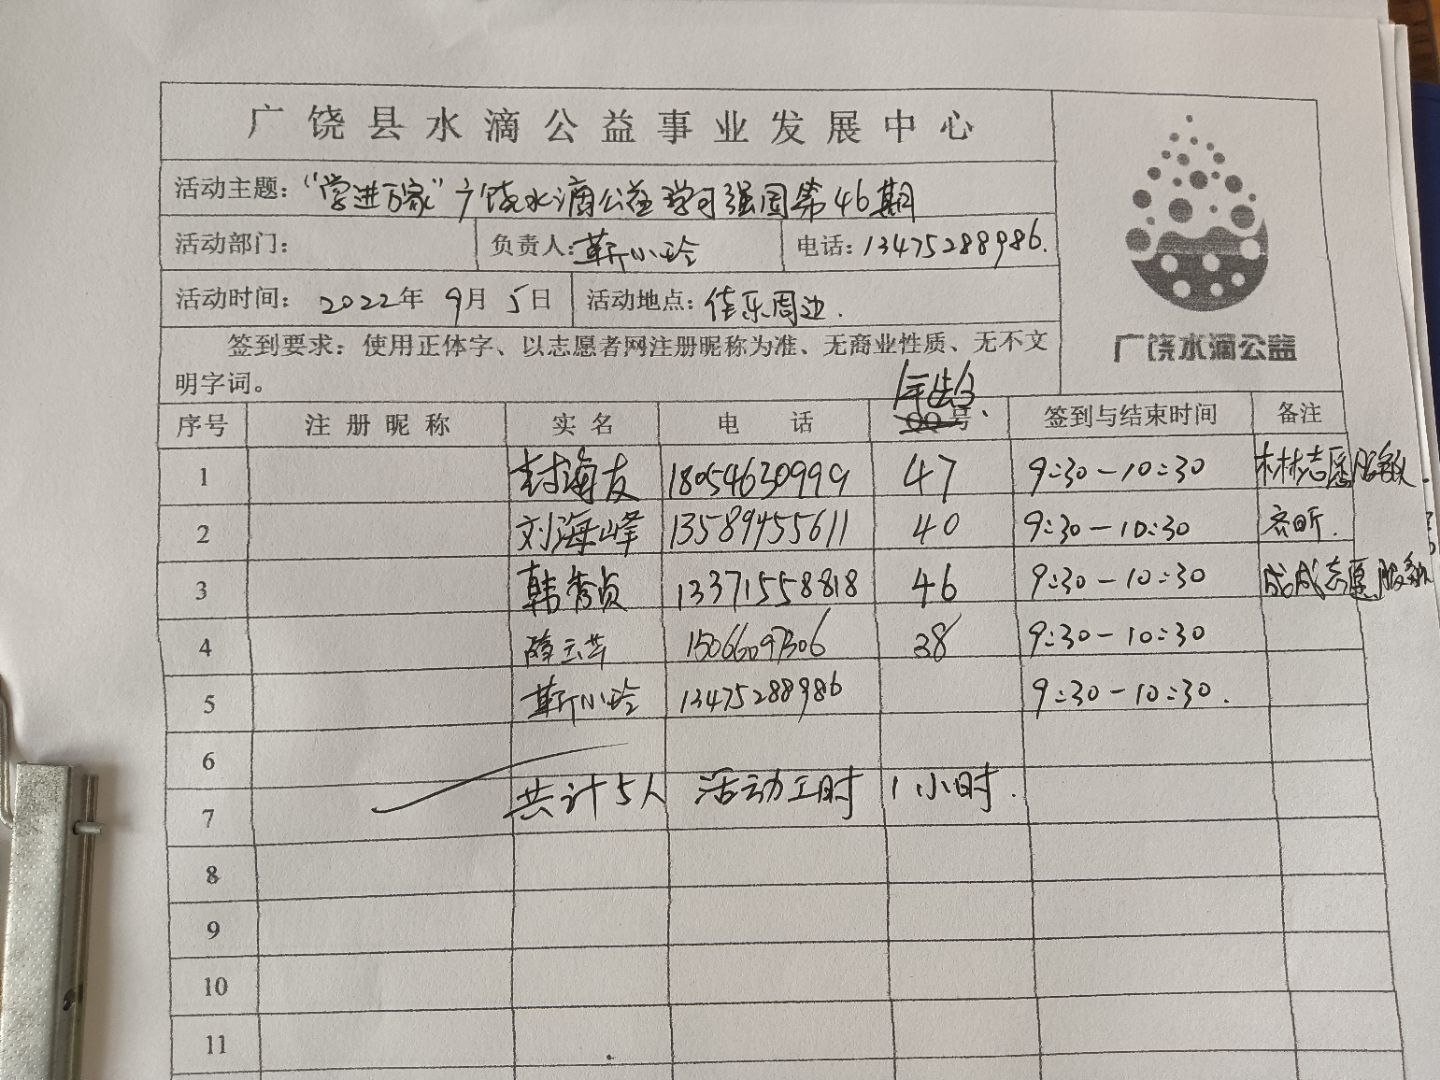 广饶县水滴公益事业发展中心
活动主题："学进万家"广饶水滴公益学习强国第46期
活动部门： 负责人：靳小玲 电话：13475288986.
活动时间：2022年9月5日 活动地点：佳乐周边.
签到要求：使用正体字、以志愿者网注册昵称为准、无商业性质、无不文
明字词。
广饶水滴公益
年龄
序号 注册昵称 实名 电话 QQ号 签到与结束时间 备注
1 封海友 18054630999 47 9:30-10:30 木林志愿服务队.
2 刘海峰 13589455611 40 9:30-10:30
3 韩秀贞 13371558818 46 9:30-10:30 志愿服务队
4 15066097306 38 9:30-10:30
5 靳小玲 13475288986 9:30-10:30.
6
7 共计5人 活动工时 1小时.
8
9
10
11